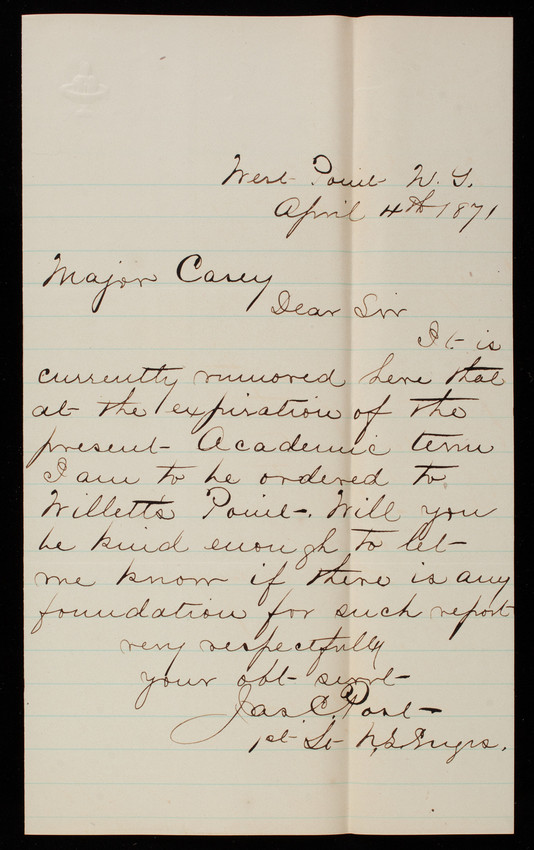 West Point N.Y.
April 4th 1871
Major Casey
Dear Sir
It is
currently rumored here that
at the expiration of the
present Academic term
I am to be ordered to
Willett's Point. Will you
be kind enough to let
me know if there is any
foundation for such report
very respectfully
your obt servt
Jas C. Post
1st Lt U.S. Engrs.